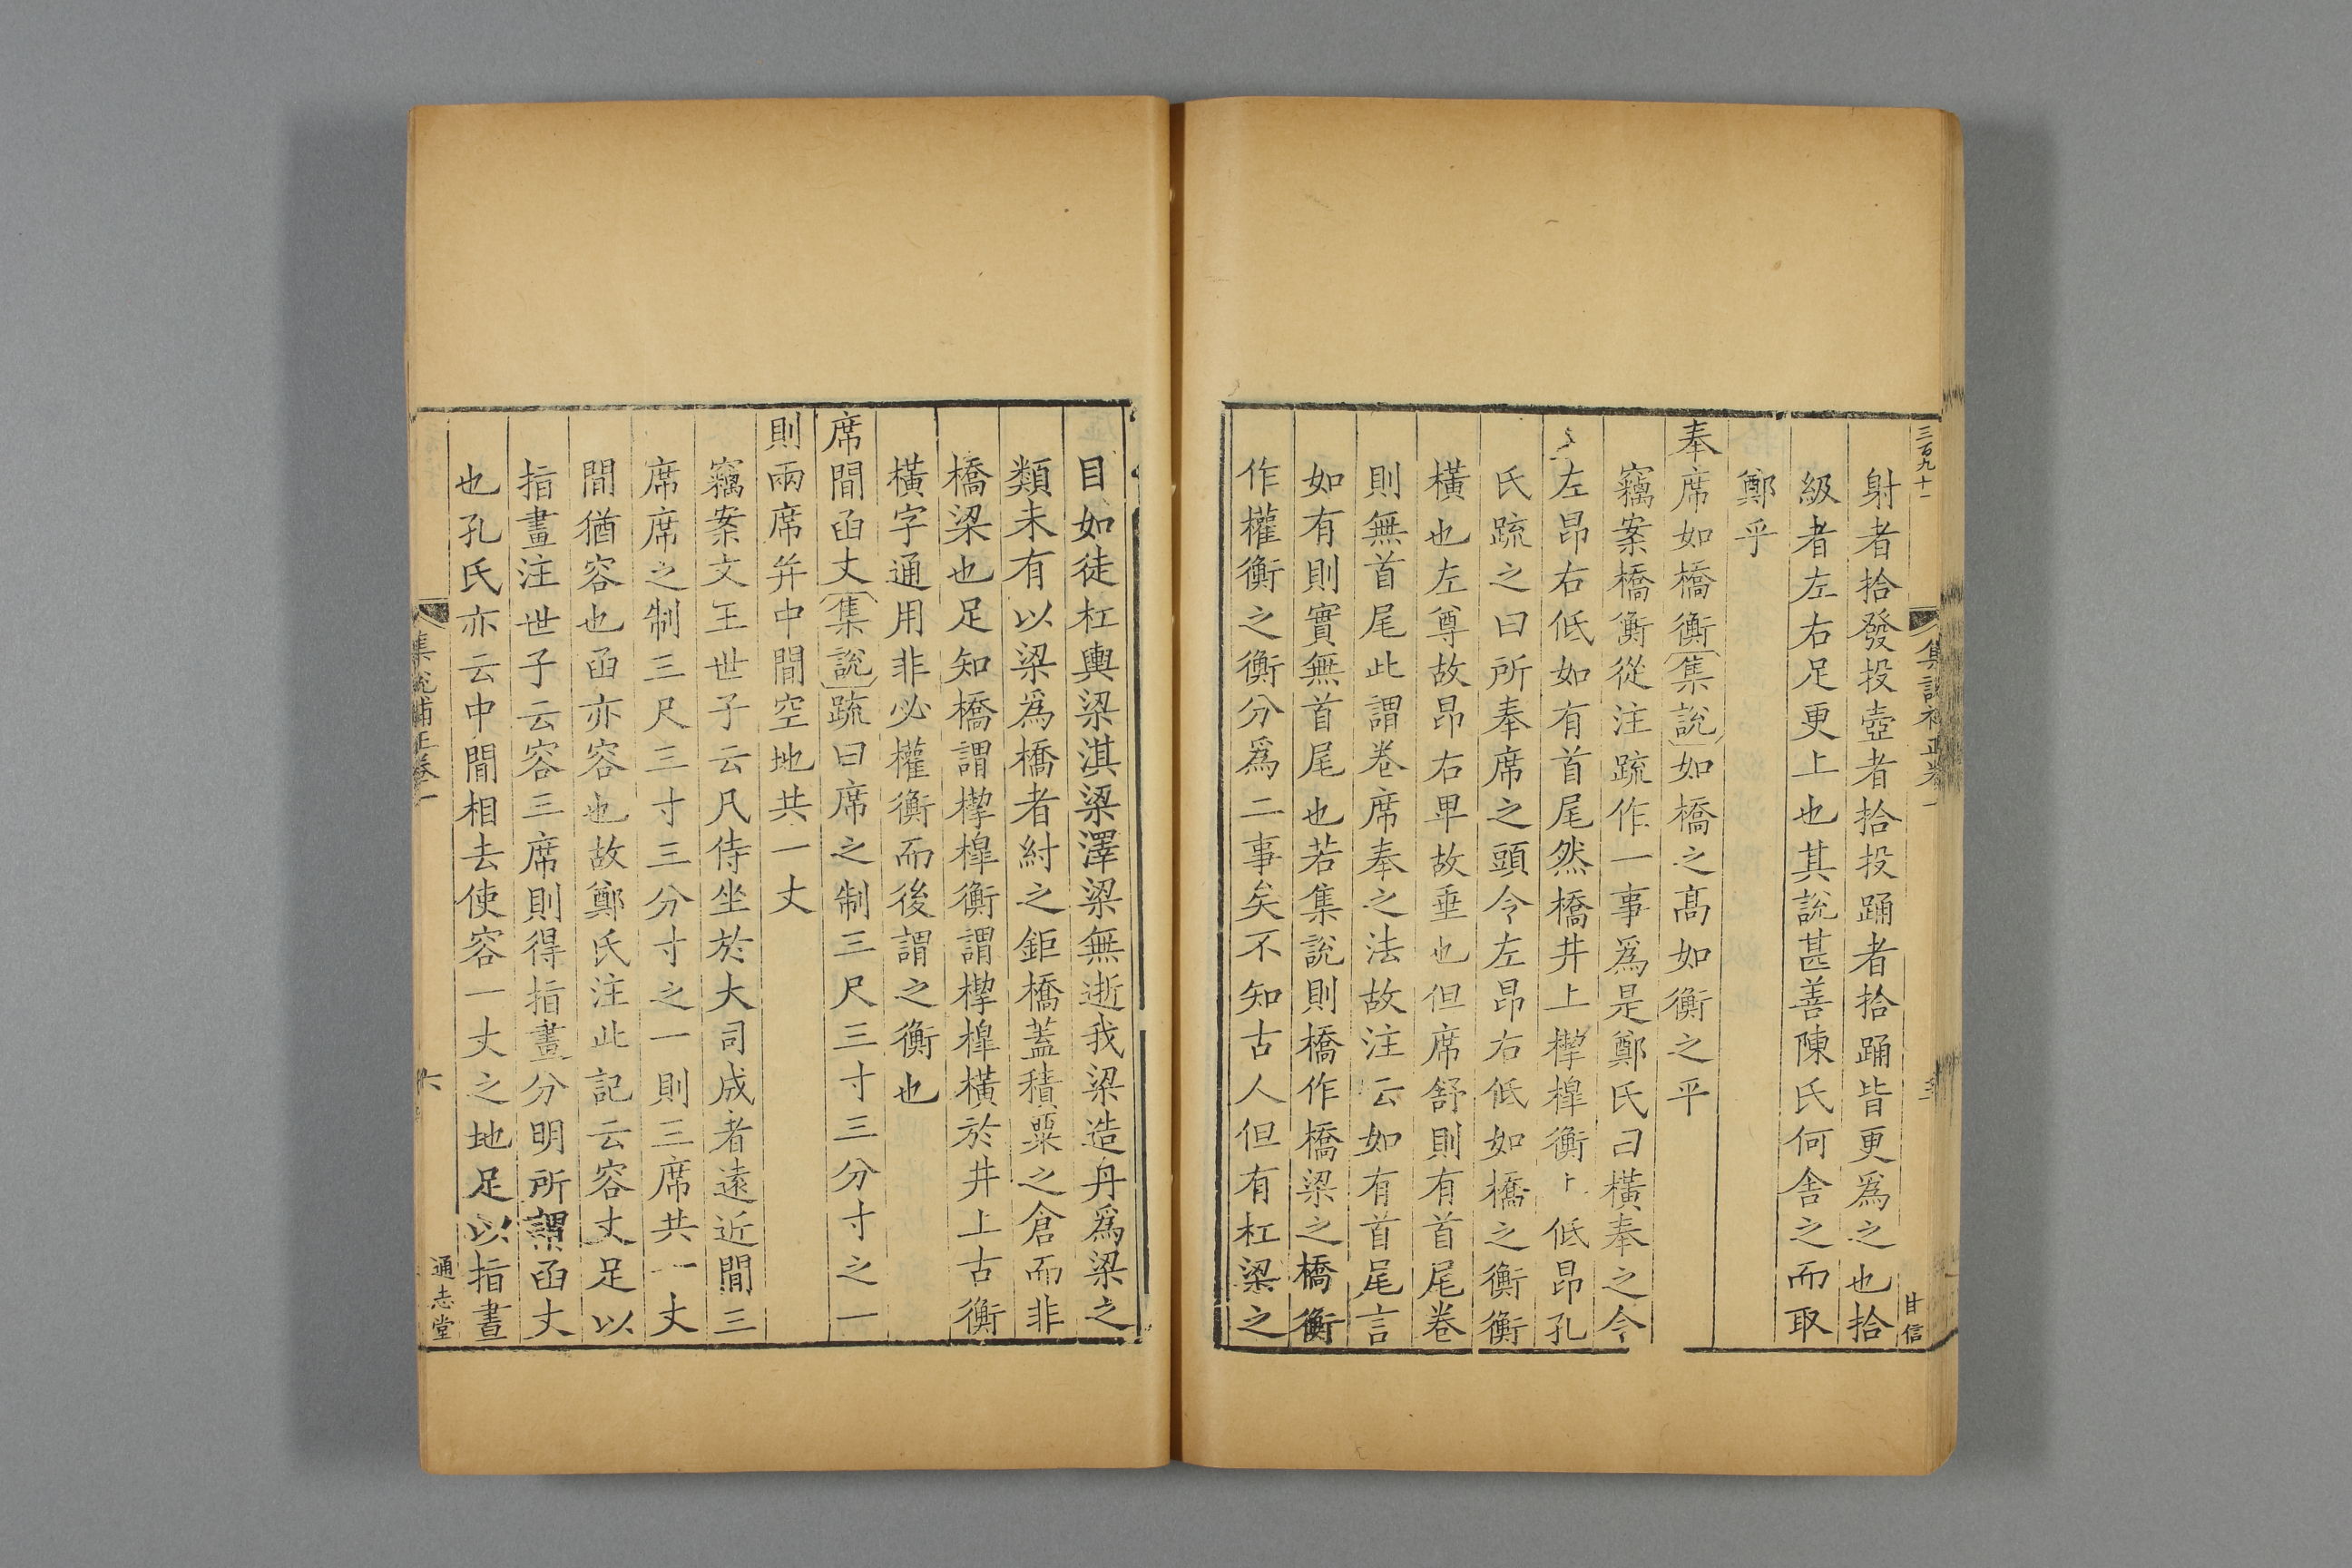 三百九十一
集說補正卷一
甘信
射者拾發投壺者拾投踊者拾踊皆更爲之也拾
級者左右足更上也其說甚善陳氏何舍之而取
鄭乎
奉席如橋衡集說如橋之高如衡之平
竊案橋衡從注疏作一事爲是鄭氏曰橫奉之令
左昂右低如有首尾然橋井上㮮槹衡上低昂孔
氏疏之曰所奉席之頭令左昂右低如橋之衡衡
橫也左尊故昂右卑故垂也但席舒則有首尾卷
則無首尾此謂卷席奉之法故注云如有首尾言
如有則實無首尾也若集說則橋作橋梁之橋衡
作權衡之衡分爲二事矣不知古人但有杠梁之
目如徒杠輿梁淇梁澤梁無逝我梁造舟爲梁之
類未有以梁爲橋者紂之鉅橋蓋積粟之倉而非
橋梁也足知橋謂㮮槹衡謂㮮槹橫於井上古衡
橫字通用非必權衡而後謂之衡也
席間函丈集說疏曰席之制三尺三寸三分寸之一
則兩席并中間空地共一丈
竊案文王世子云凡侍坐於大司成者遠近間三
席席之制三尺三寸三分寸之一則三席共一丈
間猶容也函亦容也故鄭氏注此記云容丈足以
指畫注世子云容三席則得指畫分明所謂函丈
也孔氏亦云中間相去使容一丈之地足以指畫
集說補正卷一
六
通志堂